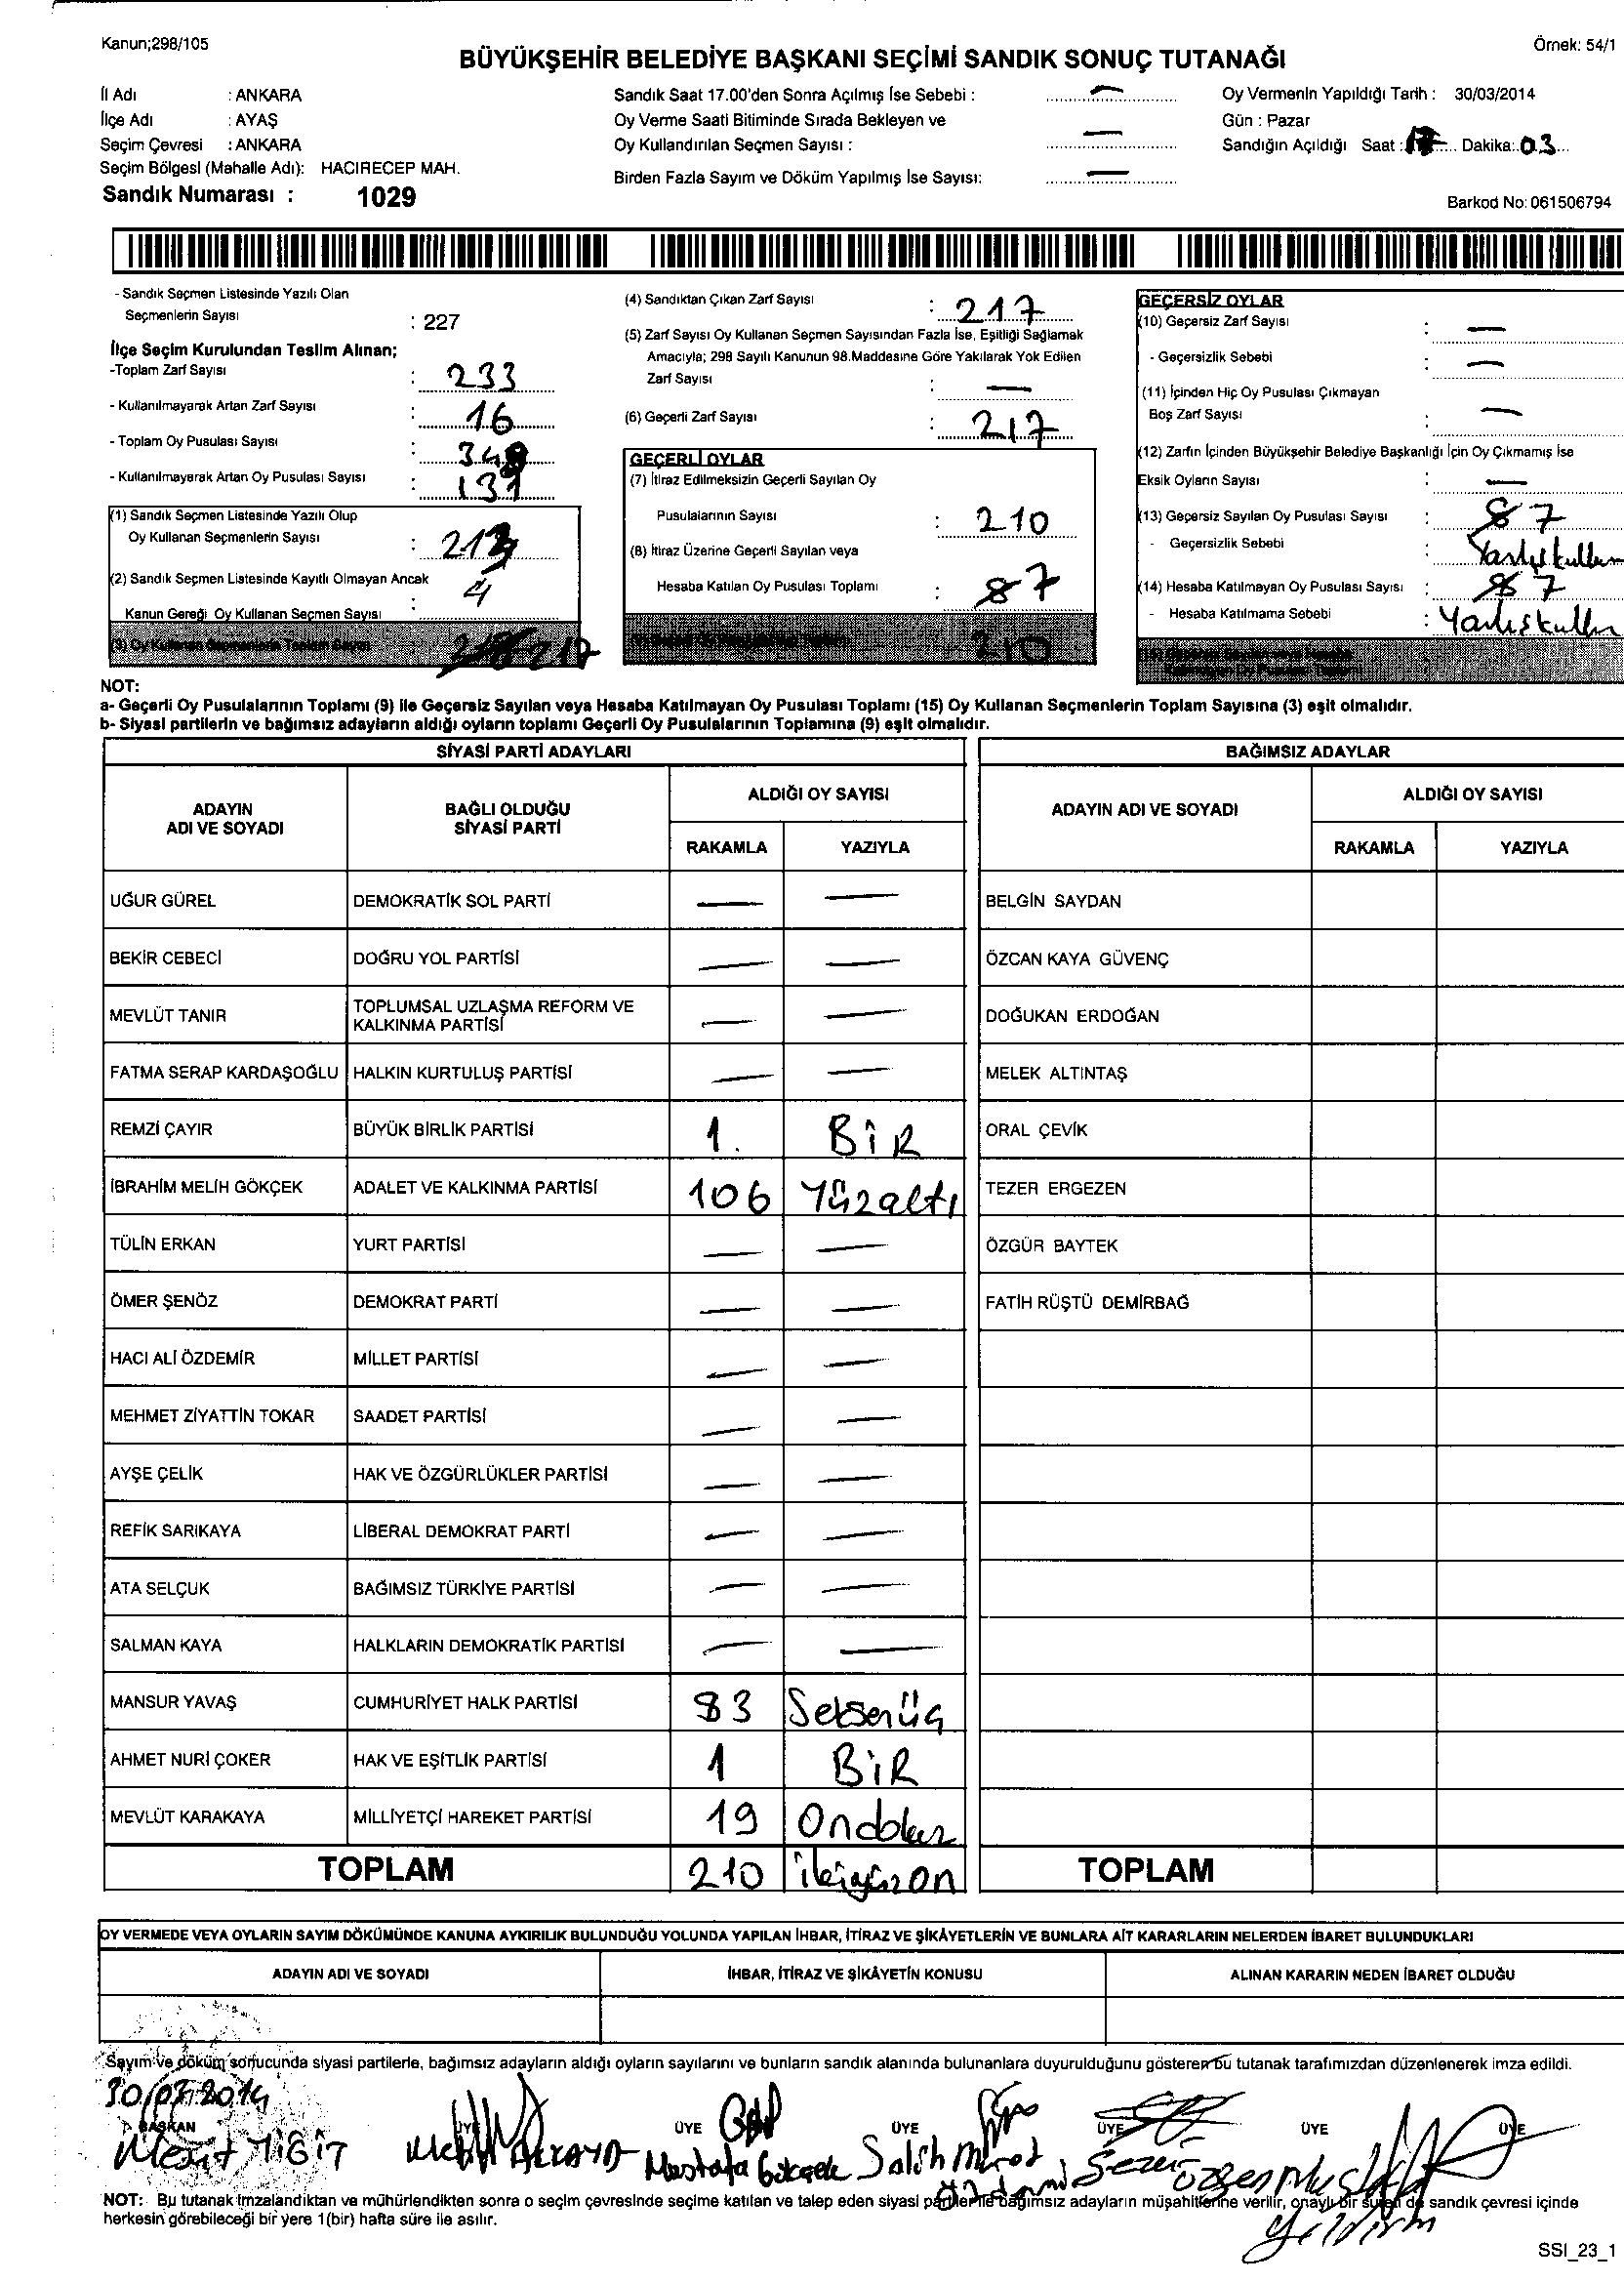 Kanun;298/105
Örnek: 54/1
BÜYÜKŞEHİR BELEDİYE BAŞKANI SEÇİMİ SANDIK SONUÇ TUTANAĞI
İl Adı : ANKARA
İlçe Adı : AYAŞ
Seçim Çevresi : ANKARA
Seçim Bölgesi (Mahalle Adı): HACIRECEP MAH.
Sandık Numarası : 1029
Sandık Saat 17.00'den Sonra Açılmış İse Sebebi : —
Oy Verme Saati Bitiminde Sırada Bekleyen ve
Oy Kullandırılan Seçmen Sayısı : —
Birden Fazla Sayım ve Döküm Yapılmış İse Sayısı: —
Oy Vermenin Yapıldığı Tarih : 30/03/2014
Gün : Pazar
Sandığın Açıldığı Saat : 17 Dakika: 03
Barkod No: 061506794
- Sandık Seçmen Listesinde Yazılı Olan
Seçmenlerin Sayısı : 227
İlçe Seçim Kurulundan Teslim Alınan;
-Toplam Zarf Sayısı : 233
- Kullanılmayarak Artan Zarf Sayısı : 16
- Toplam Oy Pusulası Sayısı :
- Kullanılmayarak Artan Oy Pusulası Sayısı :
(1) Sandık Seçmen Listesinde Yazılı Olup
Oy Kullanan Seçmenlerin Sayısı : 213
(2) Sandık Seçmen Listesinde Kayıtlı Olmayan Ancak
Kanun Gereği Oy Kullanan Seçmen Sayısı : 4
(3) Oy Kullanan Seçmenlerin Toplam Sayısı 217
(4) Sandıktan Çıkan Zarf Sayısı : 217
(5) Zarf Sayısı Oy Kullanan Seçmen Sayısından Fazla İse, Eşitliği Sağlamak
Amacıyla; 298 Sayılı Kanunun 98.Maddesine Göre Yakılarak Yok Edilen
Zarf Sayısı : —
(6) Geçerli Zarf Sayısı : 217
GEÇERLİ OYLAR
(7) İtiraz Edilmeksizin Geçerli Sayılan Oy
Pusulalarının Sayısı : 210
(8) İtiraz Üzerine Geçerli Sayılan veya
Hesaba Katılan Oy Pusulası Toplamı : 8 7
210
GEÇERSİZ OYLAR
(10) Geçersiz Zarf Sayısı : —
- Geçersizlik Sebebi : —
(11) İçinden Hiç Oy Pusulası Çıkmayan
Boş Zarf Sayısı : —
(12) Zarfın İçinden Büyükşehir Belediye Başkanlığı İçin Oy Çıkmamış İse
Eksik Oyların Sayısı : —
(13) Geçersiz Sayılan Oy Pusulası Sayısı : 8 7
- Geçersizlik Sebebi :
(14) Hesaba Katılmayan Oy Pusulası Sayısı : 8 7
- Hesaba Katılmama Sebebi :
NOT:
a- Geçerli Oy Pusulalarının Toplamı (9) ile Geçersiz Sayılan veya Hesaba Katılmayan Oy Pusulası Toplamı (15) Oy Kullanan Seçmenlerin Toplam Sayısına (3) eşit olmalıdır.
b- Siyasi partilerin ve bağımsız adayların aldığı oyların toplamı Geçerli Oy Pusulalarının Toplamına (9) eşit olmalıdır.
SİYASİ PARTİ ADAYLARI
BAĞIMSIZ ADAYLAR
ADAYIN ADI VE SOYADI
BAĞLI OLDUĞU SİYASİ PARTİ
ALDIĞI OY SAYISI
RAKAMLA YAZIYLA
ADAYIN ADI VE SOYADI
ALDIĞI OY SAYISI
RAKAMLA YAZIYLA
UĞUR GÜREL DEMOKRATİK SOL PARTİ — — BELGİN SAYDAN
BEKİR CEBECİ DOĞRU YOL PARTİSİ — — ÖZCAN KAYA GÜVENÇ
MEVLÜT TANIR TOPLUMSAL UZLAŞMA REFORM VE KALKINMA PARTİSİ — — DOĞUKAN ERDOĞAN
FATMA SERAP KARDAŞOĞLU HALKIN KURTULUŞ PARTİSİ — — MELEK ALTINTAŞ
REMZİ ÇAYIR BÜYÜK BİRLİK PARTİSİ 1. BİR ORAL ÇEVİK
İBRAHİM MELİH GÖKÇEK ADALET VE KALKINMA PARTİSİ 106 Yüzaltı TEZER ERGEZEN
TÜLİN ERKAN YURT PARTİSİ — — ÖZGÜR BAYTEK
ÖMER ŞENÖZ DEMOKRAT PARTİ — — FATİH RÜŞTÜ DEMİRBAĞ
HACI ALİ ÖZDEMİR MİLLET PARTİSİ — —
MEHMET ZİYATTİN TOKAR SAADET PARTİSİ — —
AYŞE ÇELİK HAK VE ÖZGÜRLÜKLER PARTİSİ — —
REFİK SARIKAYA LİBERAL DEMOKRAT PARTİ — —
ATA SELÇUK BAĞIMSIZ TÜRKİYE PARTİSİ — —
SALMAN KAYA HALKLARIN DEMOKRATİK PARTİSİ — —
MANSUR YAVAŞ CUMHURİYET HALK PARTİSİ 83 Seksenüç
AHMET NURİ ÇOKER HAK VE EŞİTLİK PARTİSİ 1 BİR
MEVLÜT KARAKAYA MİLLİYETÇİ HAREKET PARTİSİ 19 Ondokuz
TOPLAM 210 ikiyüzon TOPLAM
OY VERMEDE VEYA OYLARIN SAYIM DÖKÜMÜNDE KANUNA AYKIRILIK BULUNDUĞU YOLUNDA YAPILAN İHBAR, İTİRAZ VE ŞİKÂYETLERİN VE BUNLARA AİT KARARLARIN NELERDEN İBARET BULUNDUKLARI
ADAYIN ADI VE SOYADI İHBAR, İTİRAZ VE ŞİKÂYETİN KONUSU ALINAN KARARIN NEDEN İBARET OLDUĞU
Sayım ve döküm sonucunda siyasi partilerle, bağımsız adayların aldığı oyların sayılarını ve bunların sandık alanında bulunanlara duyurulduğunu gösteren bu tutanak tarafımızdan düzenlenerek imza edildi.
30/03/2014
BAŞKAN ÜYE ÜYE ÜYE ÜYE ÜYE ÜYE
Mesut YİĞİT Mustafa Gökçek Salih Murat Özdemir Sezer Özgen Mustafa Yıldırım
NOT: Bu tutanak imzalandıktan ve mühürlendikten sonra o seçim çevresinde seçime katılan ve talep eden siyasi partiler ile bağımsız adayların müşahitlerine verilir, onaylı bir sureti de sandık çevresi içinde
herkesin görebileceği bir yere 1(bir) hafta süre ile asılır.
SSI_23_1